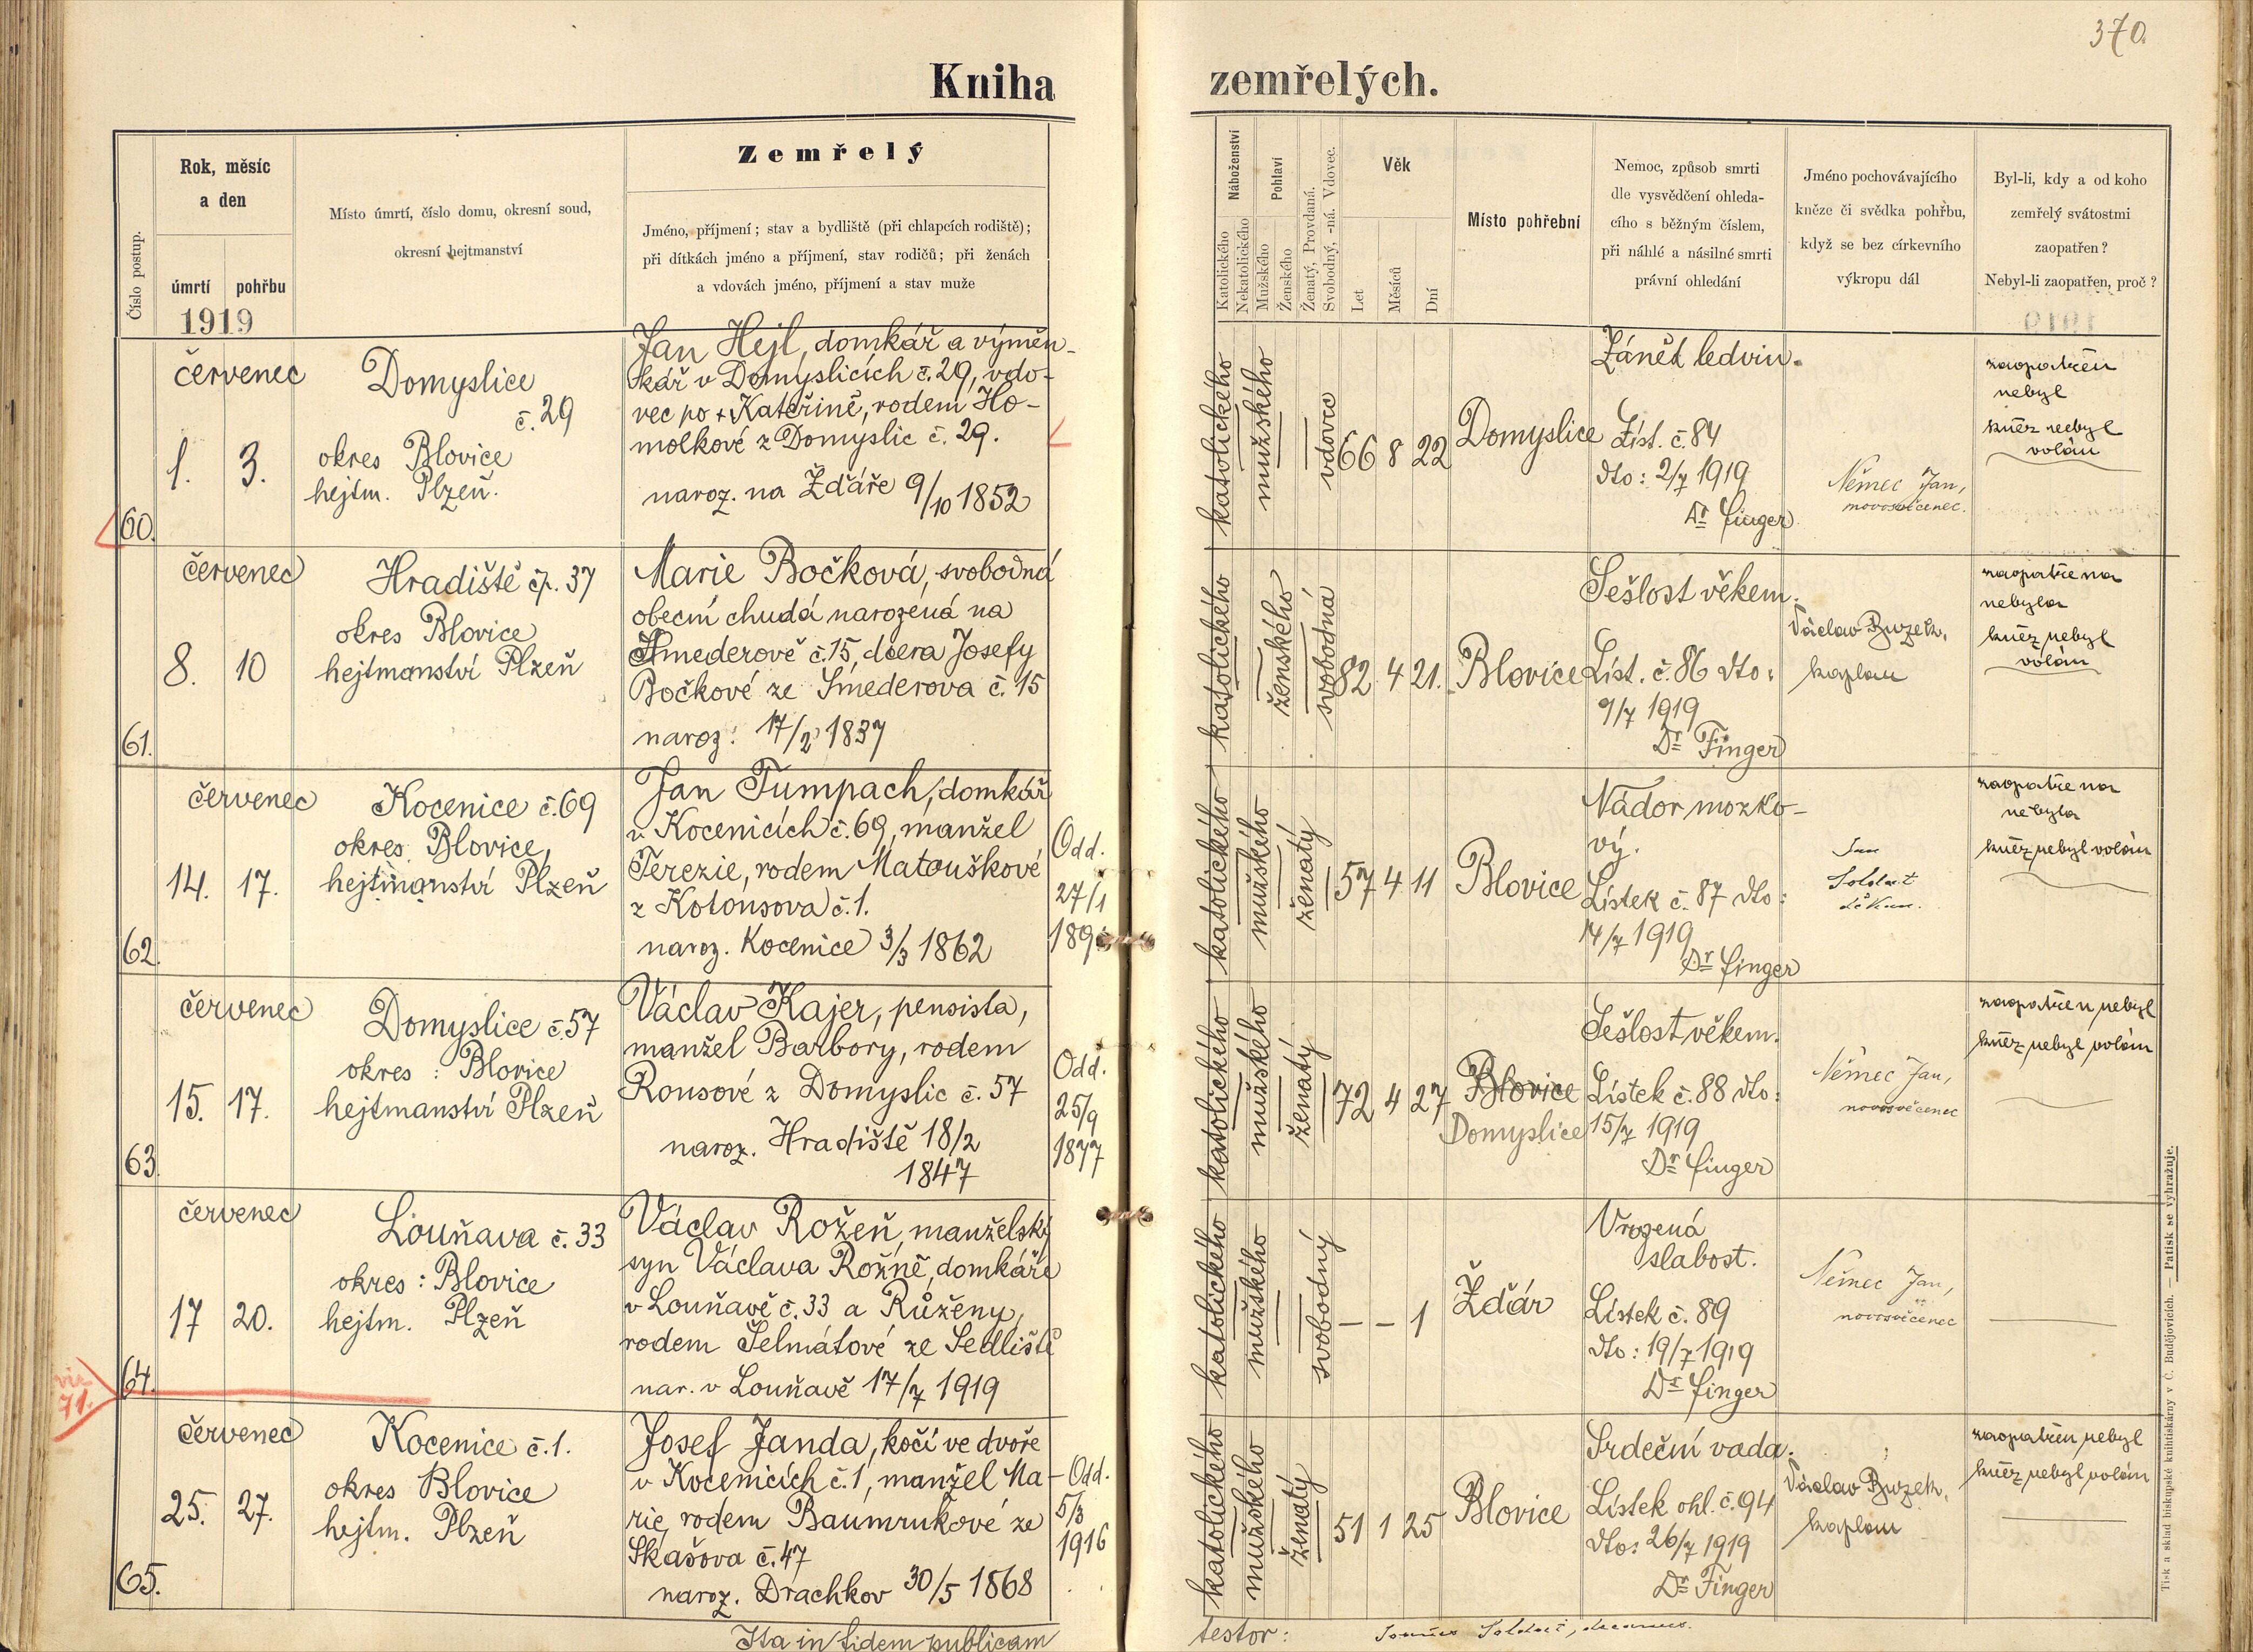 370.
Kniha zemřelých.
Číslo postup.
Rok, měsíc
a den
úmrtí pohřbu
1919
Místo úmrtí, číslo domu, okresní soud,
okresní hejtmanství
Zemřelý
Jméno, příjmení; stav a bydliště (při chlapcích rodiště);
při dítkách jméno a příjmení, stav rodičů; při ženách
a vdovách jméno, příjmení a stav muže
Náboženství
Katolického
Nekatolického
Pohlaví
Mužského
Ženského
Ženatý, Provdaná.
Svobodný, -ná. Vdovec.
Věk
Let
Měsíců
Dní
Místo pohřební
Nemoc, způsob smrti
dle vysvědčení ohleda-
cího s běžným číslem,
při náhlé a násilné smrti
právní ohledání
Jméno pochovávajícího
kněze či svědka pohřbu,
když se bez církevního
výkropu dál
Byl-li, kdy a od koho
zemřelý svátostmi
zaopatřen?
Nebyl-li zaopatřen, proč?
60.
červenec
1. 3.
Domyslice
č. 29
okres Blovice
hejtm. Plzeň.
Jan Hejl, domkář a výměn-
kář v Domyslicích č. 29, vdo-
vec po + Kateřině, rodem Ho-
molkové z Domyslic č. 29.
naroz. na Žďáře 9/10 1852
katolického
mužského
vdovec
66 8 22
Domyslice
Zánět ledvin.
List. č. 84
dto: 2/7 1919
Dr Finger
Němec Jan,
novosvěcenec.
zaopatřen
nebyl
kněz nebyl
volán
61.
červenec
8. 10
Hradiště čp. 37
okres Blovice
hejtmanství Plzeň
Marie Bočková, svobodná
obecní chudá narozená na
Smederově č. 15, dcera Josefy
Bočkové ze Smederova č. 15
naroz: 17/2 1837
katolického
ženského
svobodná
82 4 21.
Blovice
Sešlost věkem.
List. č. 86 dto:
9/7 1919
Dr Finger
Václav Buzek,
kaplan
zaopatřena
nebyla
kněz nebyl
volán
62.
červenec
14. 17.
Kocenice č. 69
okres Blovice,
hejtmanství Plzeň
Jan Tumpach, domkář
v Kocenicích č. 69, manžel
Terezie, rodem Matouškové
z Kotousova č. 1.
naroz. Kocenice 3/3 1862
Odd.
27/1
189
katolického
mužského
ženatý
57 4 11
Blovice
Nádor mozko-
vý.
Lístek č. 87 dto:
14/7 1919
Dr Finger
Jan
Soldát
děkan.
zaopatřena
nebyla
kněz nebyl volán
63.
červenec
15. 17.
Domyslice č. 57
okres: Blovice
hejtmanství Plzeň
Václav Kajer, pensista,
manžel Barbory, rodem
Rousové z Domyslic č. 57
naroz. Hradiště 18/2
1847
Odd.
25/9
1877
katolického
mužského
ženatý
72 4 27
Blovice
Domyslice
Sešlost věkem.
Lístek č. 88 dto:
15/7 1919
Dr Finger
Němec Jan,
novosvěcenec
zaopatřen nebyl
kněz nebyl volán
64.
viz
71.
červenec
17 20.
Louňava č. 33
okres: Blovice
hejtm. Plzeň
Václav Rožeň, manželský
syn Václava Rožně, domkáře
v Louňavě č. 33 a Růženy,
rodem Šelmátové ze Sedliště
nar. v Louňavě 17/7 1919
katolického
mužského
svobodný
– – 1
Žďár
Vrozená
slabost.
Lístek č. 89
dto: 19/7 1919
Dr Finger
Němec Jan,
novosvěcenec
65.
červenec
25. 27.
Kocenice č. 1.
okres Blovice
hejtm. Plzeň
Josef Janda, kočí ve dvoře
v Kocenicích č. 1, manžel Ma-
rie, rodem Baumrukové ze
Skašova č. 47
naroz. Drachkov 30/5 1868
Odd.
5/3
1916
katolického
mužského
ženatý
51 1 25
Blovice
Srdeční vada.
Lístek ohl. č. 94
dto: 26/7 1919
Dr Finger
Václav Buzek,
kaplan
zaopatřen nebyl
kněz nebyl volán
Ita in fidem publicam testor: Soldát, decanus.
Tisk a sklad biskupské knihtiskárny v Č. Budějovicích. — Patisk se vyhražuje.